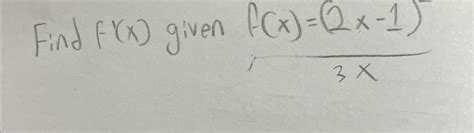 Find f'(x) given f(x)=(2x-1)
3x